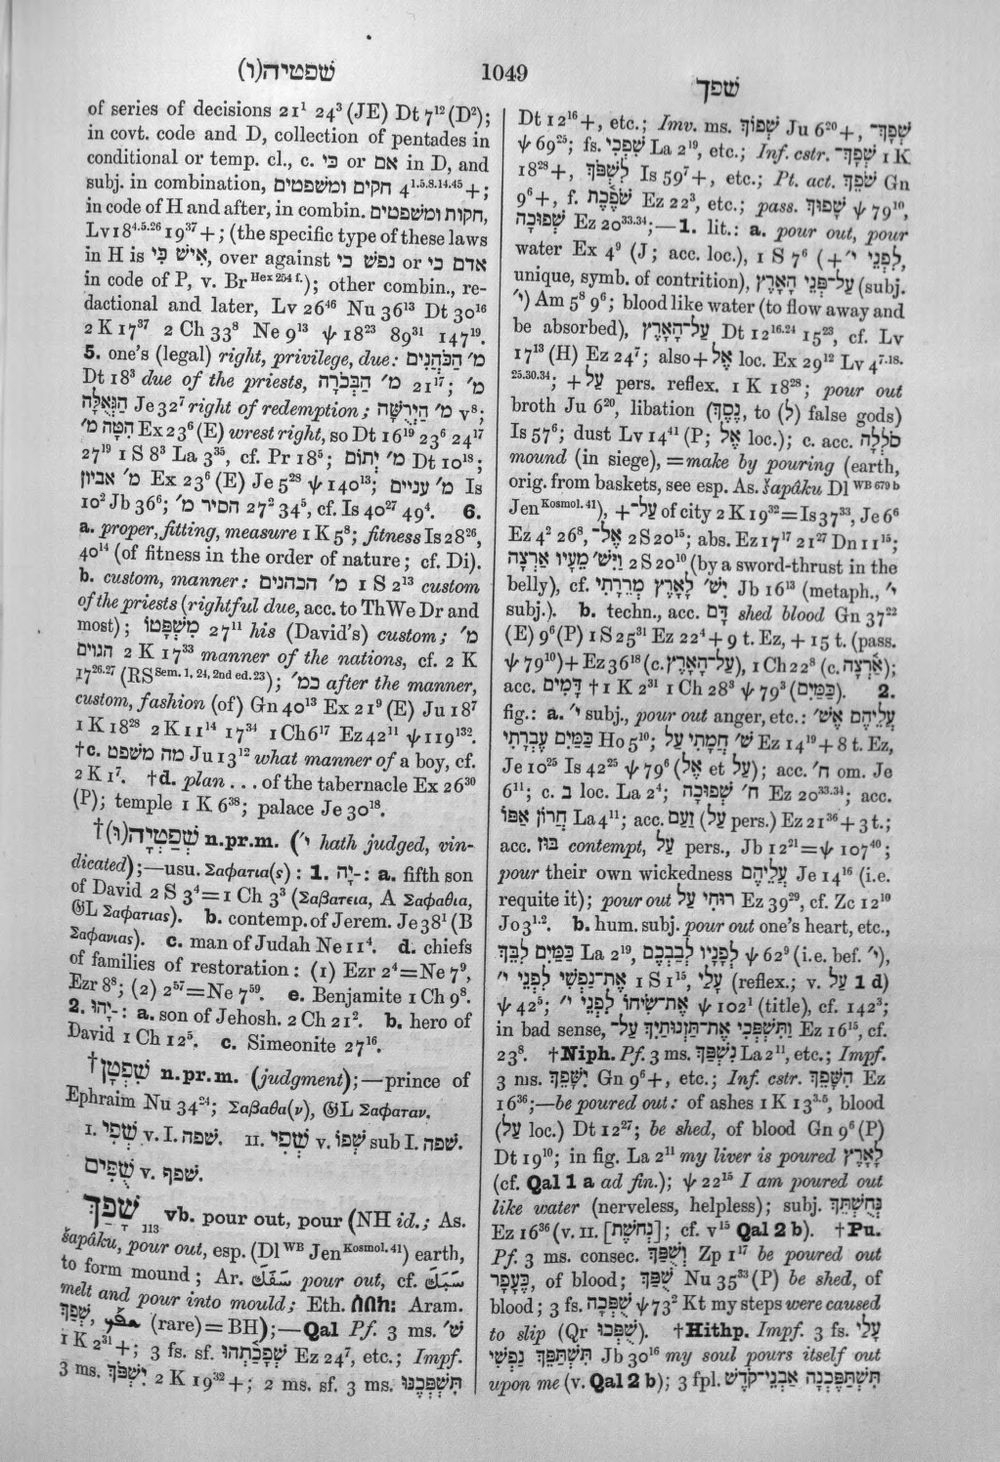 שפטיה(ו)
1049
שפך
of series of decisions 21¹ 24³ (JE) Dt 7¹² (D²);
in covt. code and D, collection of pentades in
conditional or temp. cl., c. כי or אם in D, and
subj. in combination, חקים ומשפטים 4¹·⁵·⁸·¹⁴·⁴⁵ +;
in code of H and after, in combin. חקות ומשפטים,
Lv 18⁴·⁵·²⁶ 19³⁷ +; (the specific type of these laws
in H is אִישׁ כִּי, over against נפשׁ כי or אדם כי
in code of P, v. Br Hex 254 f.); other combin., re-
dactional and later, Lv 26⁴⁶ Nu 36¹³ Dt 30¹⁶
2 K 17³⁷ 2 Ch 33⁸ Ne 9¹³ ψ 18²³ 89³¹ 147¹⁹.
5. one's (legal) right, privilege, due: מ׳ הַכֹּהֲנִים
Dt 18³ due of the priests, מ׳ הַבְּכֹרָה 21¹⁷; מ׳
הַגְּאֻלָּה Je 32⁷ right of redemption; מ׳ הַיְרֻשָּׁה v⁸;
הִטָּה מ׳ Ex 23⁶ (E) wrest right, so Dt 16¹⁹ 23⁶ 24¹⁷
27¹⁹ 1 S 8³ La 3³⁵, cf. Pr 18⁵; מ׳ יתום Dt 10¹⁸;
מ׳ אביון Ex 23⁶ (E) Je 5²⁸ ψ 140¹³; מ׳ עניים Is
10² Jb 36⁶; הסיר מ׳ 27² 34⁵, cf. Is 40²⁷ 49⁴. 6.
a. proper, fitting, measure 1 K 5⁸; fitness Is 28²⁶,
40¹⁴ (of fitness in the order of nature; cf. Di).
b. custom, manner: מ׳ הכהנים 1 S 2¹³ custom
of the priests (rightful due, acc. to ThWe Dr and
most); מִשְׁפָּטוֹ 27¹¹ his (David's) custom; מ׳
הגוים 2 K 17³³ manner of the nations, cf. 2 K
17²⁶·²⁷ (RS Sem. 1, 24, 2nd ed. 23); כמ׳ after the manner,
custom, fashion (of) Gn 40¹³ Ex 21⁹ (E) Ju 18⁷
1 K 18²⁸ 2 K 11¹⁴ 17³⁴ 1 Ch 6¹⁷ Ez 42¹¹ ψ 119¹³².
†c. מה משפט Ju 13¹² what manner of a boy, cf.
2 K 1⁷. †d. plan . . . of the tabernacle Ex 26³⁰
(P); temple 1 K 6³⁸; palace Je 30¹⁸.
†שְׁפַטְיָה(וּ) n.pr.m. (י׳ hath judged, vin-
dicated);—usu. Σαφατια(ς): 1. יָה-: a. fifth son
of David 2 S 3⁴ = 1 Ch 3³ (Σαβατεια, A Σαφαθια,
𝔊L Σαφατιας). b. contemp. of Jerem. Je 38¹ (B
Σαφανιας). c. man of Judah Ne 11⁴. d. chiefs
of families of restoration: (1) Ezr 2⁴ = Ne 7⁹,
Ezr 8⁸; (2) 2⁵⁷ = Ne 7⁵⁹. e. Benjamite 1 Ch 9⁸.
2. יָהוּ-: a. son of Jehosh. 2 Ch 21². b. hero of
David 1 Ch 12⁵. c. Simeonite 27¹⁶.
†שִׁפְטָן n.pr.m. (judgment);—prince of
Ephraim Nu 34²⁴; Σαβαθα(ν), 𝔊L Σαφαταν.
I. שְׁפִי v. I. שפה. II. שְׁפִי v. שְׁפוֹ sub I. שפה.
שֻׁפִּים v. שפף.
שָׁפַךְ 113 vb. pour out, pour (NH id.; As.
šapâku, pour out, esp. (Dl WB Jen Kosmol. 41) earth,
to form mound; Ar. سَفَكَ pour out, cf. سَبَكَ
melt and pour into mould; Eth. ሰበከ: Aram.
שְׁפַךְ, (rare) = BH);—Qal Pf. 3 ms. שׁ׳
1 K 2³¹ +; 3 fs. sf. שְׁפָכַתְהוּ Ez 24⁷, etc.; Impf.
3 ms. יִשְׁפֹּךְ 2 K 19³² +; 2 ms. sf. 3 ms. תִּשְׁפְּכֶנּוּ
Dt 12¹⁶ +, etc.; Imv. ms. שְׁפוֹךְ Ju 6²⁰ +, שְׁפָךְ־
ψ 69²⁵; fs. שִׁפְכִי La 2¹⁹, etc.; Inf. cstr. שְׁפָךְ־ 1 K
18²⁸ +, לִשְׁפֹּךְ Is 59⁷ +, etc.; Pt. act. שֹׁפֵךְ Gn
9⁶ +, f. שֹׁפֶכֶת Ez 22³, etc.; pass. שָׁפוּךְ ψ 79¹⁰,
שְׁפוּכָה Ez 20³³·³⁴;—1. lit.: a. pour out, pour
water Ex 4⁹ (J; acc. loc.), 1 S 7⁶ (+ לִפְנֵי י׳,
unique, symb. of contrition), עַל־פְּנֵי הָאָרֶץ (subj.
י׳) Am 5⁸ 9⁶; blood like water (to flow away and
be absorbed), עַל־הָאָרֶץ Dt 12¹⁶·²⁴ 15²³, cf. Lv
17¹³ (H) Ez 24⁷; also + אֶל loc. Ex 29¹² Lv 4⁷·¹⁸·
²⁵·³⁰·³⁴; + עַל pers. reflex. 1 K 18²⁸; pour out
broth Ju 6²⁰, libation (נֶסֶךְ, to (ל) false gods)
Is 57⁶; dust Lv 14⁴¹ (P; אֶל loc.); c. acc. סֹלְלָה
mound (in siege), = make by pouring (earth,
orig. from baskets, see esp. As. šapâku Dl WB 679 b
Jen Kosmol. 41), + עַל־ of city 2 K 19³² = Is 37³³, Je 6⁶
Ez 4² 26⁸, אֶל־ 2 S 20¹⁵; abs. Ez 17¹⁷ 21²⁷ Dn 11¹⁵;
וַיִּשׁ׳ מֵעָיו אַרְצָה 2 S 20¹⁰ (by a sword-thrust in the
belly), cf. יִשׁ׳ לָאָרֶץ מְרֵרָתִי Jb 16¹³ (metaph., י׳
subj.). b. techn., acc. דָּם shed blood Gn 37²²
(E) 9⁶ (P) 1 S 25³¹ Ez 22⁴ + 9 t. Ez, + 15 t. (pass.
ψ 79¹⁰) + Ez 36¹⁸ (c. עַל־הָאָרֶץ), 1 Ch 22⁸ (c. אַרְצָה);
acc. דָּמִים †1 K 2³¹ 1 Ch 28³ ψ 79³ (כַּמַּיִם). 2.
fig.: a. י׳ subj., pour out anger, etc.: עֲלֵיהֶם אֶשׁ׳
כַּמַּיִם עֶבְרָתִי Ho 5¹⁰; שׁ׳ חֲמָתִי עַל Ez 14¹⁹ + 8 t. Ez,
Je 10²⁵ Is 42²⁵ ψ 79⁶ (אֶל et עַל); acc. ח׳ om. Je
6¹¹; c. ב loc. La 2⁴; ח׳ שְׁפוּכָה Ez 20³³·³⁴; acc.
חֲרוֹן אַפּוֹ La 4¹¹; acc. זַעַם (עַל pers.) Ez 21³⁶ + 3 t.;
acc. בּוּז contempt, עַל pers., Jb 12²¹ = ψ 107⁴⁰;
pour their own wickedness עֲלֵיהֶם Je 14¹⁶ (i.e.
requite it); pour out רוּחִי עַל Ez 39²⁹, cf. Zc 12¹⁰
Jo 3¹·². b. hum. subj. pour out one's heart, etc.,
כַּמַּיִם לִבֵּךְ La 2¹⁹, לְפָנָיו לְבַבְכֶם ψ 62⁹ (i.e. bef. י׳),
אֶת־נַפְשִׁי לִפְנֵי י׳ 1 S 1¹⁵, עָלַי (reflex.; v. עַל 1 d)
ψ 42⁵; אֶת־שִׂיחוֹ לִפְנֵי י׳ ψ 102¹ (title), cf. 142³;
in bad sense, וַתִּשְׁפְּכִי אֶת־תַּזְנוּתַיִךְ עַל־ Ez 16¹⁵, cf.
23⁸. †Niph. Pf. 3 ms. נִשְׁפַּךְ La 2¹¹, etc.; Impf.
3 ms. יִשָּׁפֵךְ Gn 9⁶ +, etc.; Inf. cstr. הִשָּׁפֵךְ Ez
16³⁶;—be poured out: of ashes 1 K 13³·⁵, blood
(עַל loc.) Dt 12²⁷; be shed, of blood Gn 9⁶ (P)
Dt 19¹⁰; in fig. La 2¹¹ my liver is poured לָאָרֶץ
(cf. Qal 1 a ad fin.); ψ 22¹⁵ I am poured out
like water (nerveless, helpless); subj. נְחֻשְׁתֵּךְ
Ez 16³⁶ (v. II. [נְחֹשֶׁת]; cf. v¹⁵ Qal 2 b). †Pu.
Pf. 3 ms. consec. וְשֻׁפַּךְ Zp 1¹⁷ be poured out
כֶּעָפָר, of blood; שֻׁפַּךְ Nu 35³³ (P) be shed, of
blood; 3 fs. שֻׁפְּכָה ψ 73² Kt my steps were caused
to slip (Qr שֻׁפְּכוּ). †Hithp. Impf. 3 fs. עָלַי
תִּשְׁתַּפֵּךְ נַפְשִׁי Jb 30¹⁶ my soul pours itself out
upon me (v. Qal 2 b); 3 fpl. תִּשְׁתַּפֵּכְנָה אַבְנֵי־קֹדֶשׁ